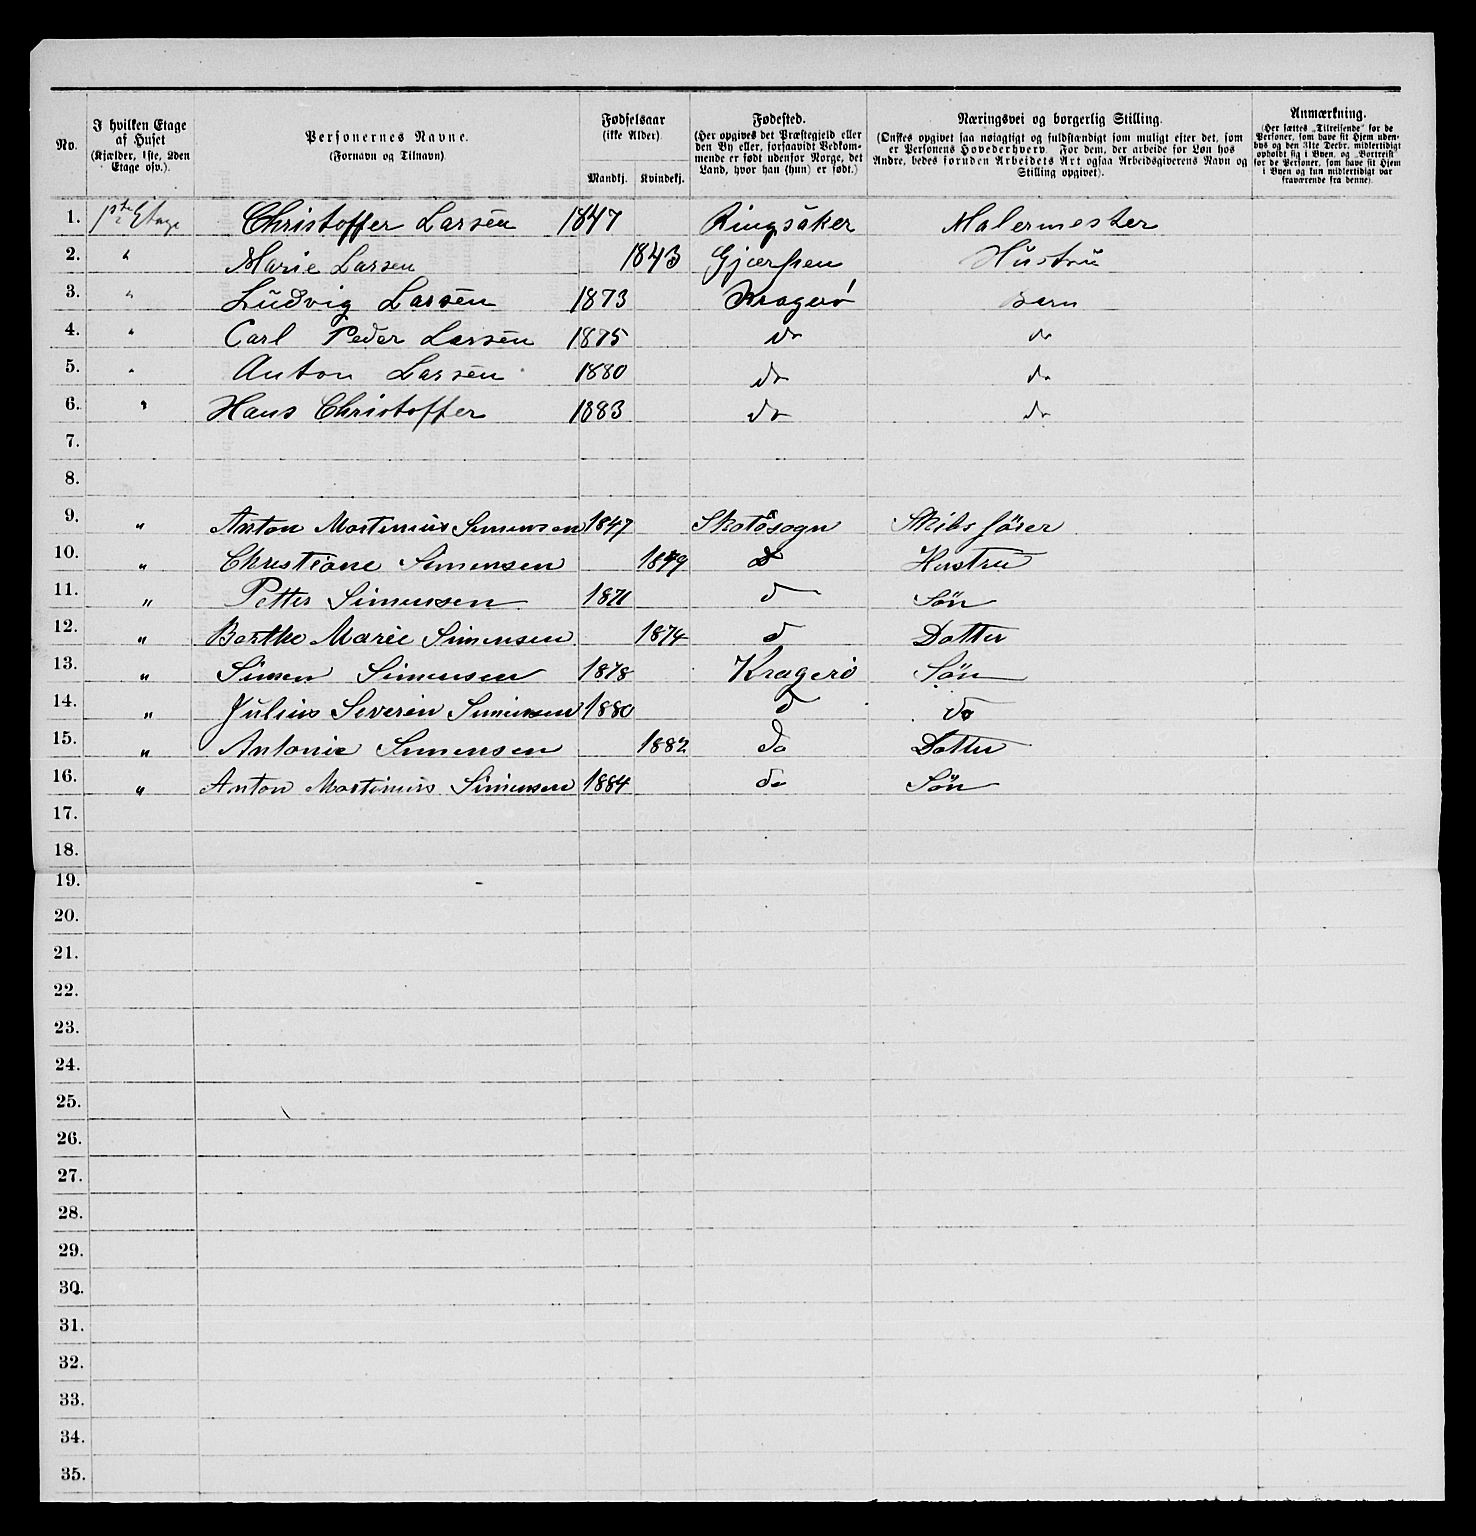 No.
I hvilken Etage af Huset (Kjælder, 1ste, 2den Etage osv.).
Personernes Navne. (Fornavn og Tilnavn).
Fødselsaar (ikke Alder). Mandkj. Kvindekj.
Fødested. (Her opgives det Præstegjeld eller den By eller, forsaavidt Vedkommende er født udenfor Norge, det Land, hvor han (hun) er født.)
Næringsvei og borgerlig Stilling. (Ønskes opgivet saa nøiagtigt og fuldstændigt som muligt efter det, som er Personens Hovederhverv. For dem, der arbeide for Løn hos Andre, bedes foruden Arbeidets Art ogsaa Arbeidsgiverens Navn og Stilling opgivet).
Anmærkning. (Her sættes „Tilreisende“ for de Personer, som have sit Hjem udenbys og den 31te Decbr. midlertidigt opholdt sig i Byen, og „Bortreist“ for de Personer, som have sit Hjem i Byen og kun midlertidigt var fraværende fra denne).
1. 1ste Etage Christoffer Larsen 1847 Ringsaker Malermester
2. " Marie Larsen 1843 Hustru
3. " Ludvig Larsen 1873 Kragerö Barn
4. " Carl Peder Larsen 1875 do do
5. " Anton Larsen 1880 do do
6. " Hans Christoffer 1883 do do
7.
8.
9. " Anton Martinius Simensen 1847 Skatøsogn Skibsförer
10. " Christiane Simensen 1849 d Hustru
11. " Petter Simensen 1871 d Sön
12. " Berthe Marie Simensen 1874 d Datter
13. " Simen Simensen 1878 Kragerö Sön
14. " Julius Severin Simensen 1880 d do
15. " Antonie Simensen 1882 do Datter
16. " Anton Martinius Simensen 1884 do Sön
17.
18.
19.
20.
21.
22.
23.
24.
25.
26.
27.
28.
29.
30.
31.
32.
33.
34.
35.